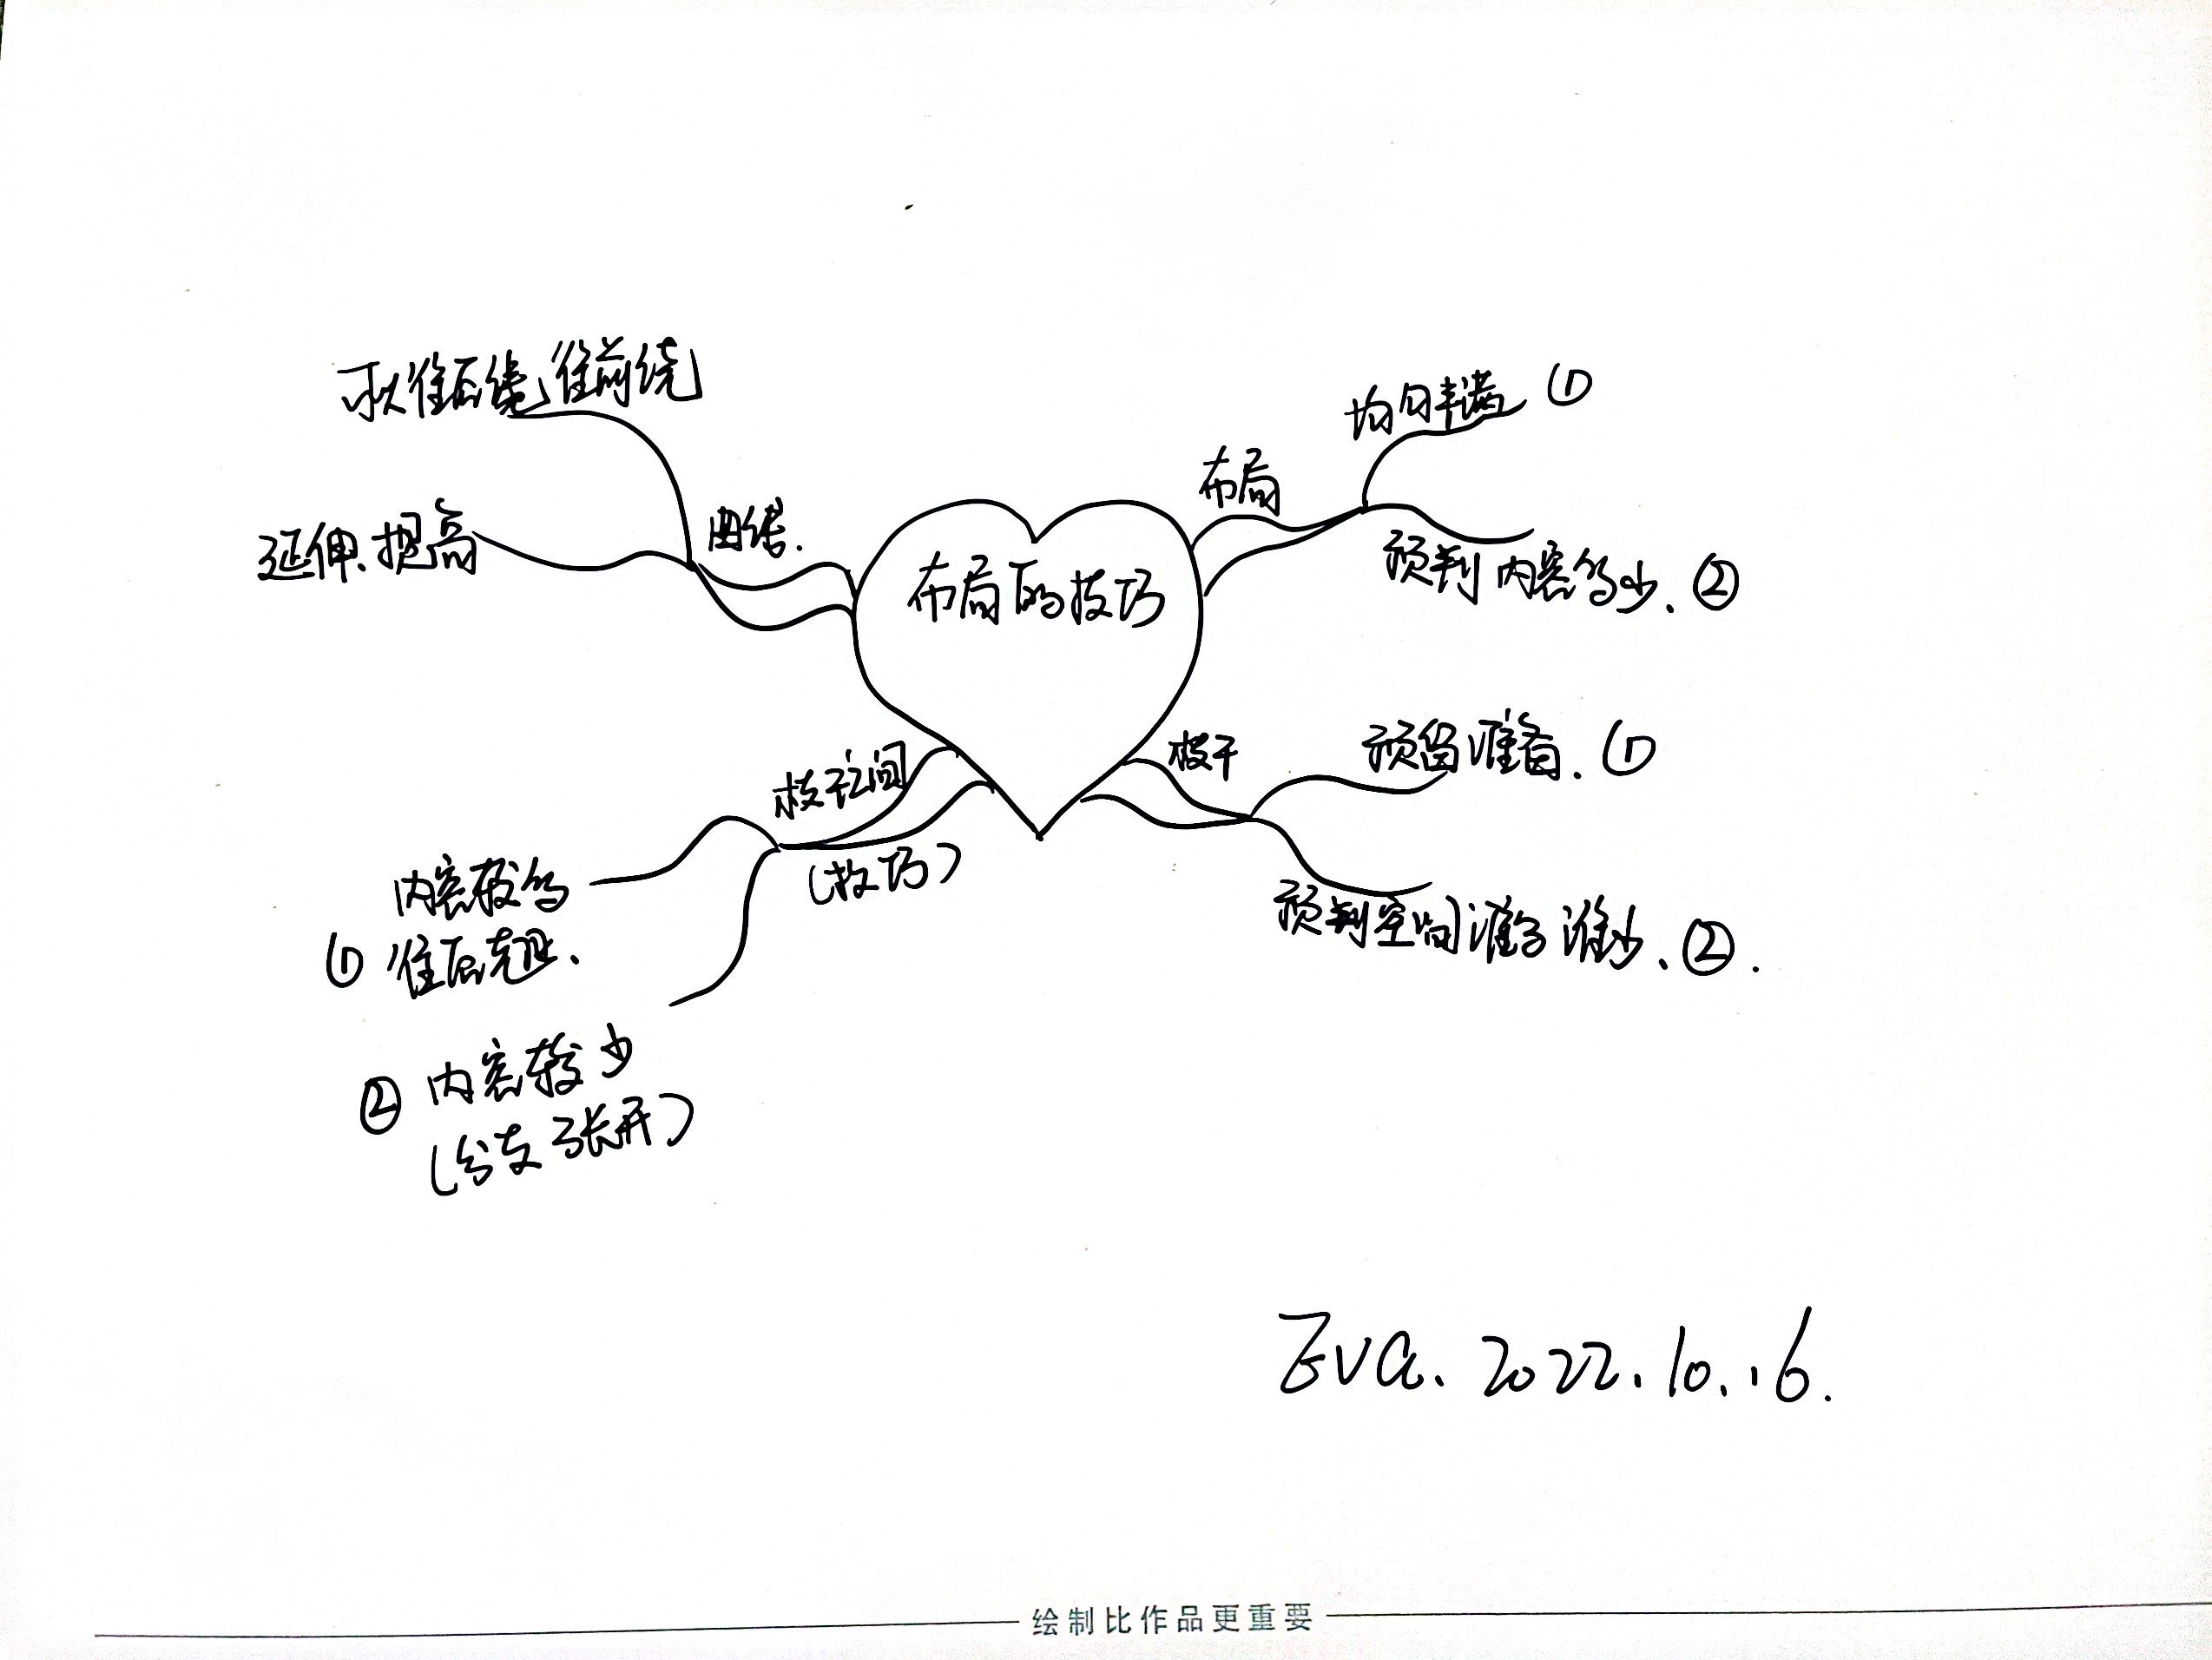 布局的技巧
布局
均匀丰满 ①
预判内容多少、②
枝干
预留准备、①
预判空间准多准少、②.
枝干之间
(技巧)
内容较多
① 往后
② 内容较少
(分支张开)
曲线.
可以往后绕,往前绕
延伸、提高
Eva. 2022.10.16.
绘制比作品更重要